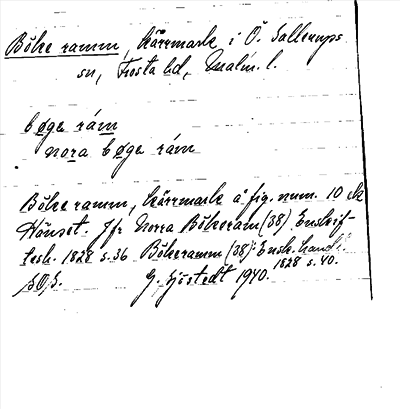 Böke ramm, kärrmark i Ö. Sallerups
sn, Frosta hd, Malm. l.
bøge rám
nora bøge rám
Böke ramm, kärrmark å fig. num. 10
Hänset. Jfr Norra Bökeram (38) Enskif-
tesk. 1828 s. 36 Bökeramm (38) Ensk. handl.
1828 s. 40.
G. Sjöstedt 1940.